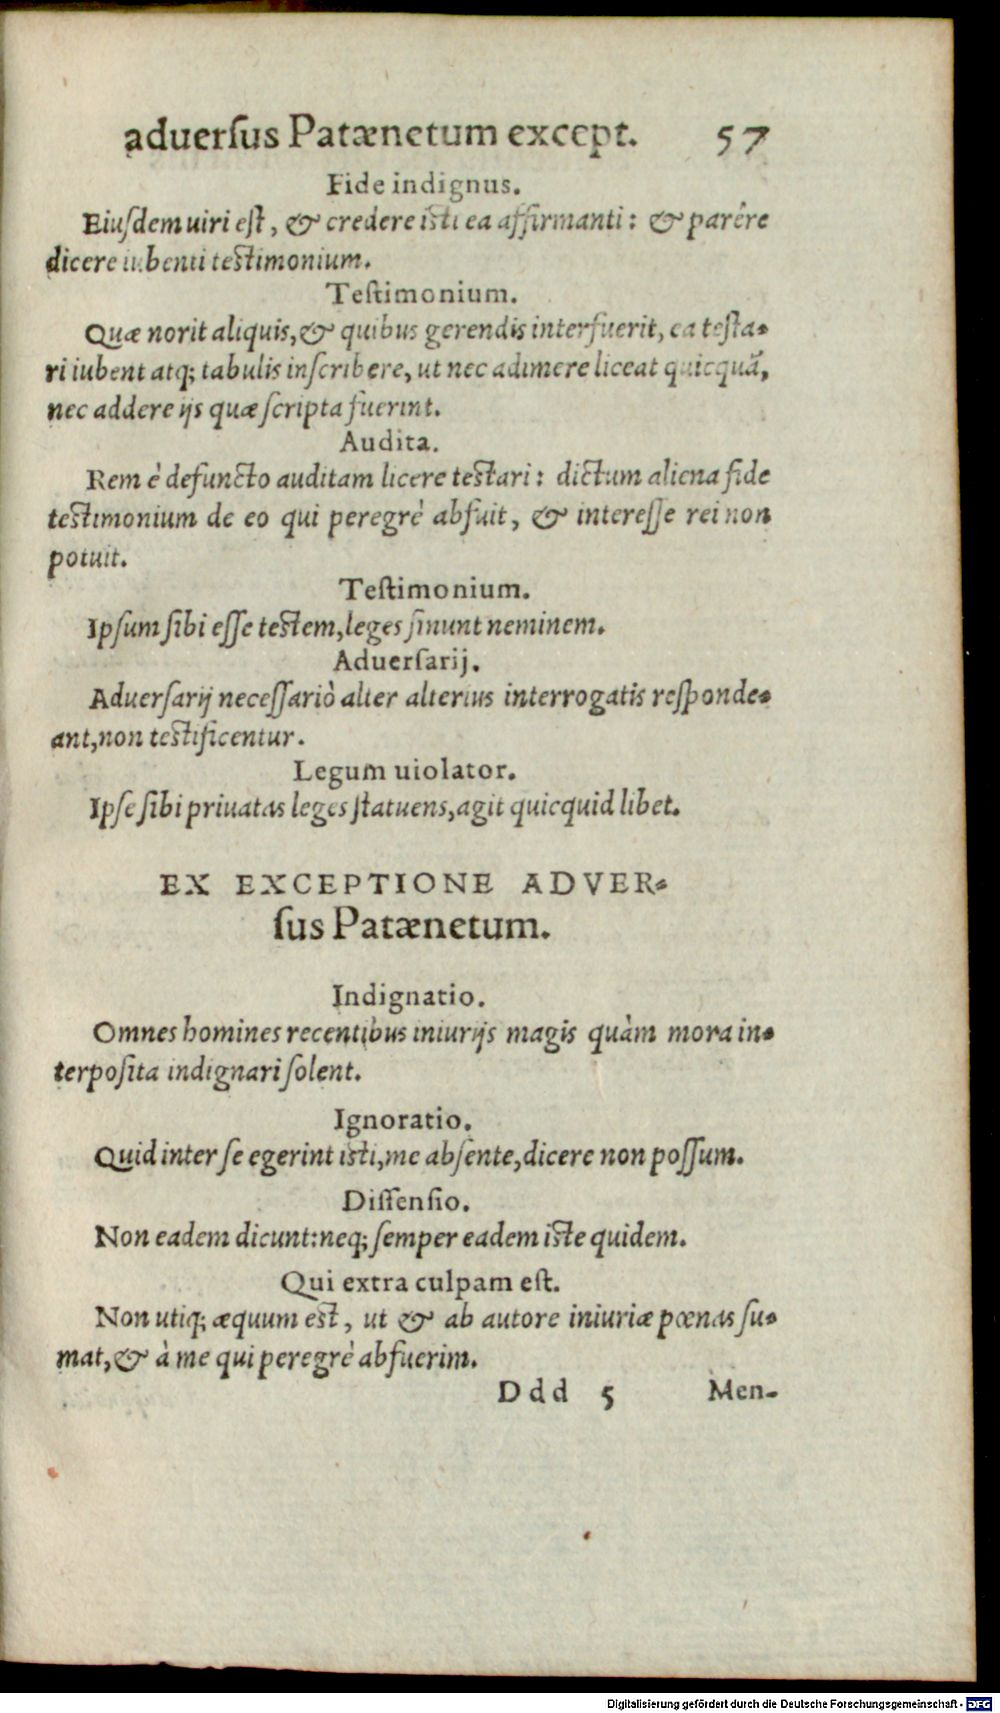 aduerſus Patænetum except. 57
Fide indignus.
Eiuſdem uiri eſt, & credere iſti ea affirmanti: & parêre
dicere iubenti teſtimonium.
Teſtimonium.
Quæ norit aliquis, & quibus gerendis interfuerit, ea teſta-
ri iubent atq; tabulis inſcribere, ut nec adimere liceat quicquã,
nec addere ijs quæ ſcripta fuerint.
Audita.
Rem è defuncto auditam licere teſtari: dictum aliena fide
teſtimonium de eo qui peregrè abfuit, & intereſſe rei non
potuit.
Teſtimonium.
Ipſum ſibi eſſe teſtem, leges ſinunt neminem.
Aduerſarij.
Aduerſarij neceſſariò alter alterius interrogatis reſponde-
ant, non teſtificentur.
Legum uiolator.
Ipſe ſibi priuatas leges ſtatuens, agit quicquid libet.
EX EXCEPTIONE ADVER-
ſus Patænetum.
Indignatio.
Omnes homines recentibus iniurijs magis quàm mora in-
terpoſita indignari ſolent.
Ignoratio.
Quid inter ſe egerint iſti, me abſente, dicere non poſſum.
Diſſenſio.
Non eadem dicunt: neq; ſemper eadem iſte quidem.
Qui extra culpam eſt.
Non utiq; æquum eſt, ut & ab autore iniuriæ pœnas ſu-
mat, & à me qui peregrè abfuerim.
Ddd 5 Men-
Digitalisierung gefördert durch die Deutsche Forschungsgemeinschaft - DFG